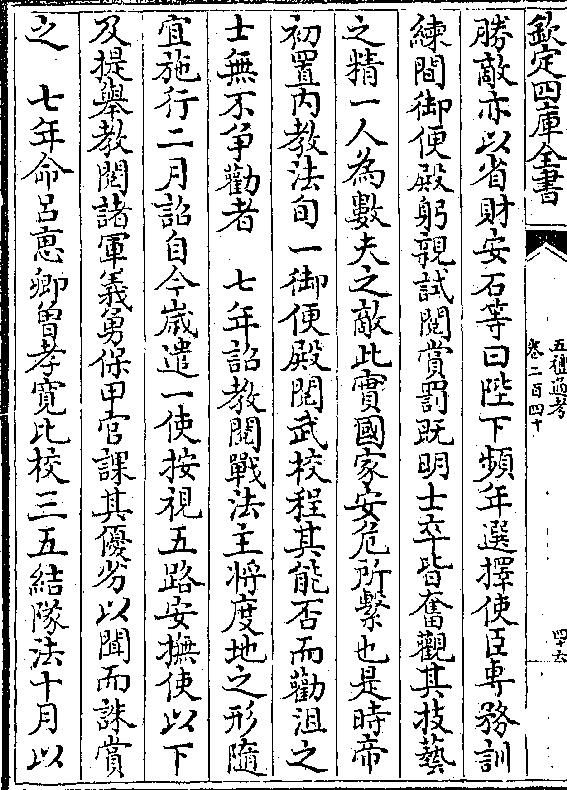 欽定四庫全書
五禮通考
卷二百四十
四十六
勝敵亦以省財安石等曰陛下頻年選擇使臣專務訓
練間御便殿躬親試閱賞罰既明士卒皆奮觀其技藝
之精一人為數夫之敵此實國家安危所繫也是時帝
初置內教法旬一御便殿閱武校程其能否而勸沮之
士無不爭勸者　七年詔教閱戰法主將度地之形隨
宜施行二月詔自今嵗遣一使按視五路安撫使以下
及提舉教閱諸軍義勇保甲官課其優劣以聞而誅賞
之　七年命呂惠卿曾孝寛比校三五結隊法十月以